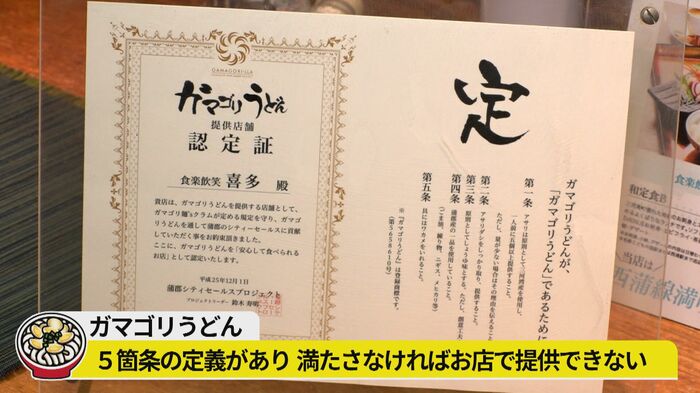 GAMAGORI-ILA
ガマゴリうどん
提供店舗
認定証
食楽飲笑 喜多 殿
貴店は、ガマゴリうどんを提供する店舗として、
ガマゴリ麺'sクラムが定める規定を守り、ガマゴ
リうどんを通して蒲郡のシティーセールスに貢献
していただく事をお約束頂きました。
ここに、ガマゴリうどんを「安心して食べられる
お店」として認定いたします。
平成25年12月1日
蒲郡シティセールスプロジェクト
プロジェクトリーダー 鈴木 寿明
定
ガマゴリうどんが、
「ガマゴリうどん」であるために
第一条 アサリは原則として三河湾産を使用し、
一人前に五個以上提供すること。
ただし、量が少ない場合はその理由を伝えること
第二条 アサリダシをしっかり取り、提供すること。
第三条 原則としてしょうゆ味とする。ただし、創意工夫
第四条 蒲郡産の一品を使用していること。
（ごま塘、練り物、ニギス、メヒカリ等）
第五条 具にはワカメをいれること。
※「ガマゴリうどん」は登録商標です。
（第5658610号）
和定食
当店は
西浦線満
ガマゴリうどん
５箇条の定義があり 満たさなければお店で提供できない